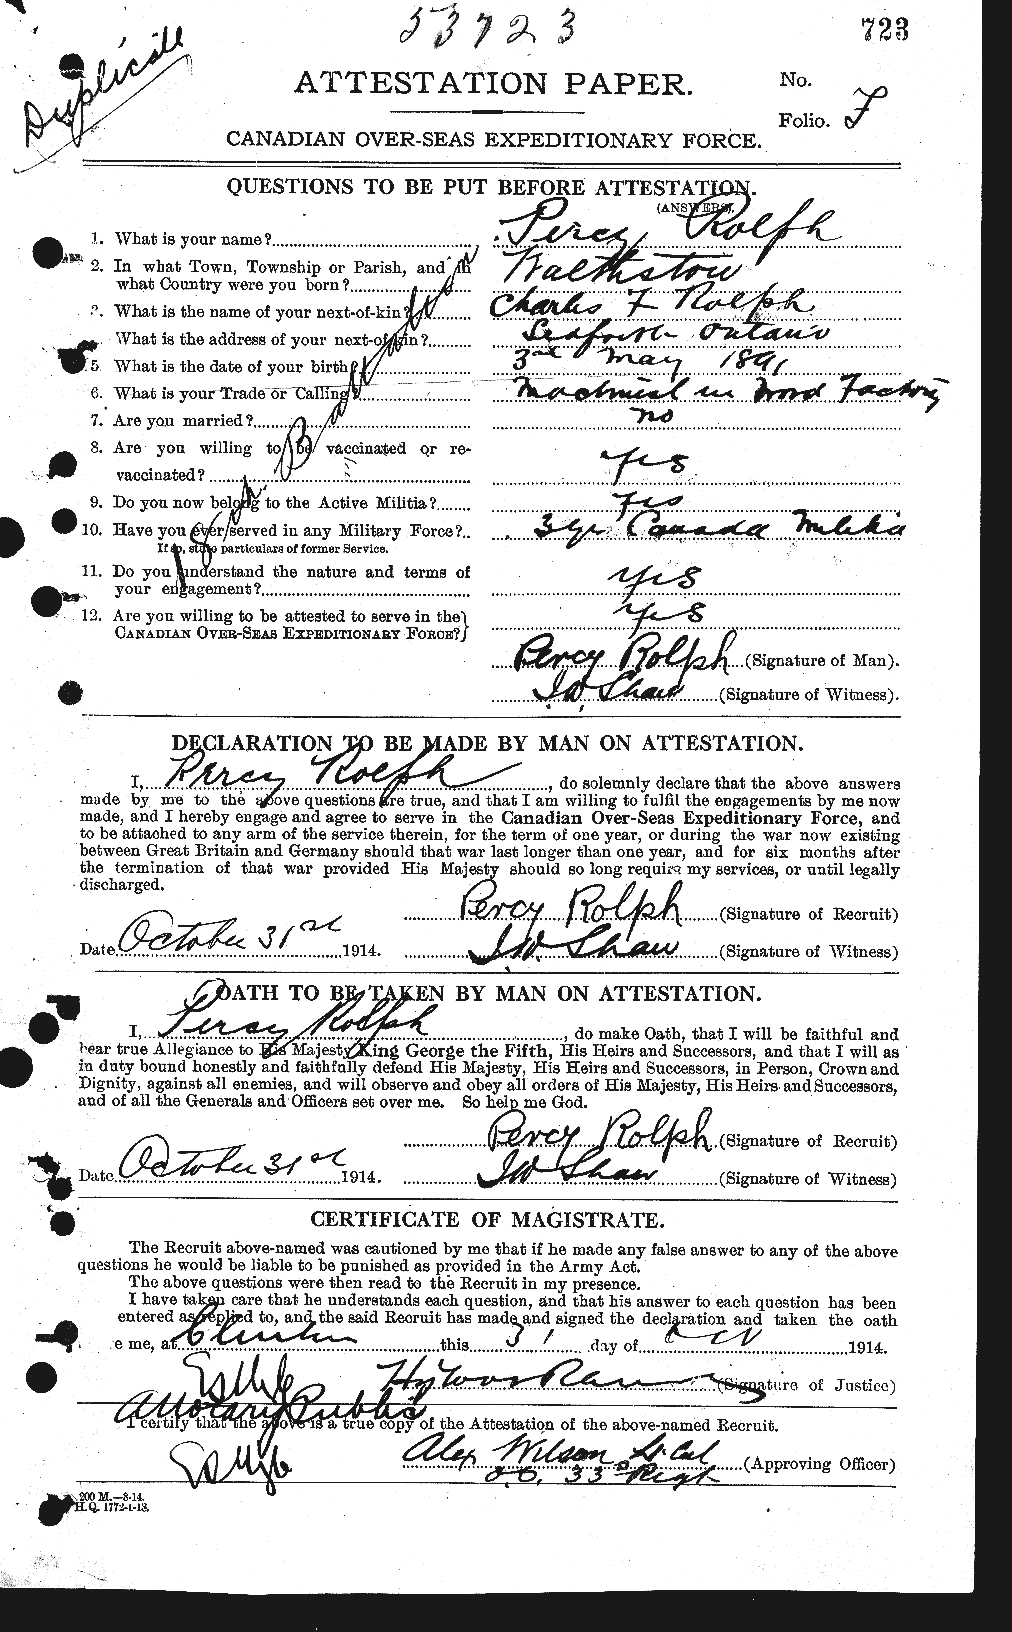 53723
723
Duplicate
ATTESTATION PAPER.
No.
Folio. F
CANADIAN OVER-SEAS EXPEDITIONARY FORCE.
QUESTIONS TO BE PUT BEFORE ATTESTATION.
(ANSWERS).
1. What is your name? Percy Rolph
2. In what Town, Township or Parish, and in Walthstow
what Country were you born?
3. What is the name of your next-of-kin? Charles F Rolph
What is the address of your next-of-kin? Seaforth Ontario
5. What is the date of your birth? 3rd May 1891
6. What is your Trade or Calling? Machinist in Wood Factory
7. Are you married? no
8. Are you willing to be vaccinated or re-
vaccinated? yes
9. Do you now belong to the Active Militia? yes
10. Have you ever served in any Military Force? 3 yr Canada Militia
If so, state particulars of former Service.
11. Do you understand the nature and terms of
your engagement? yes
12. Are you willing to be attested to serve in the
CANADIAN OVER-SEAS EXPEDITIONARY FORCE? yes
18th Battalion
Percy Rolph (Signature of Man).
J.W. Shaw (Signature of Witness).
DECLARATION TO BE MADE BY MAN ON ATTESTATION.
I, Percy Rolph, do solemnly declare that the above answers
made by me to the above questions are true, and that I am willing to fulfil the engagements by me now
made, and I hereby engage and agree to serve in the Canadian Over-Seas Expeditionary Force, and
to be attached to any arm of the service therein, for the term of one year, or during the war now existing
between Great Britain and Germany should that war last longer than one year, and for six months after
the termination of that war provided His Majesty should so long require my services, or until legally
discharged.
Percy Rolph (Signature of Recruit)
Date October 31st 1914. J.W. Shaw (Signature of Witness)
OATH TO BE TAKEN BY MAN ON ATTESTATION.
I, Percy Rolph, do make Oath, that I will be faithful and
bear true Allegiance to His Majesty King George the Fifth, His Heirs and Successors, and that I will as
in duty bound honestly and faithfully defend His Majesty, His Heirs and Successors, in Person, Crown and
Dignity, against all enemies, and will observe and obey all orders of His Majesty, His Heirs and Successors,
and of all the Generals and Officers set over me. So help me God.
Percy Rolph (Signature of Recruit)
Date October 31st 1914. JW Shaw (Signature of Witness)
CERTIFICATE OF MAGISTRATE.
The Recruit above-named was cautioned by me that if he made any false answer to any of the above
questions he would be liable to be punished as provided in the Army Act.
The above questions were then read to the Recruit in my presence.
I have taken care that he understands each question, and that his answer to each question has been
entered as replied to, and the said Recruit has made and signed the declaration and taken the oath
e me, at Clinton this 31 day of Oct 1914.
(Signature of Justice)
A Notary Public
I certify that the above is a true copy of the Attestation of the above-named Recruit.
Alex Wilson Lt. Col (Approving Officer)
O.C. 33rd Regt
200 M.—8-14.
H.Q. 1772-1-13.